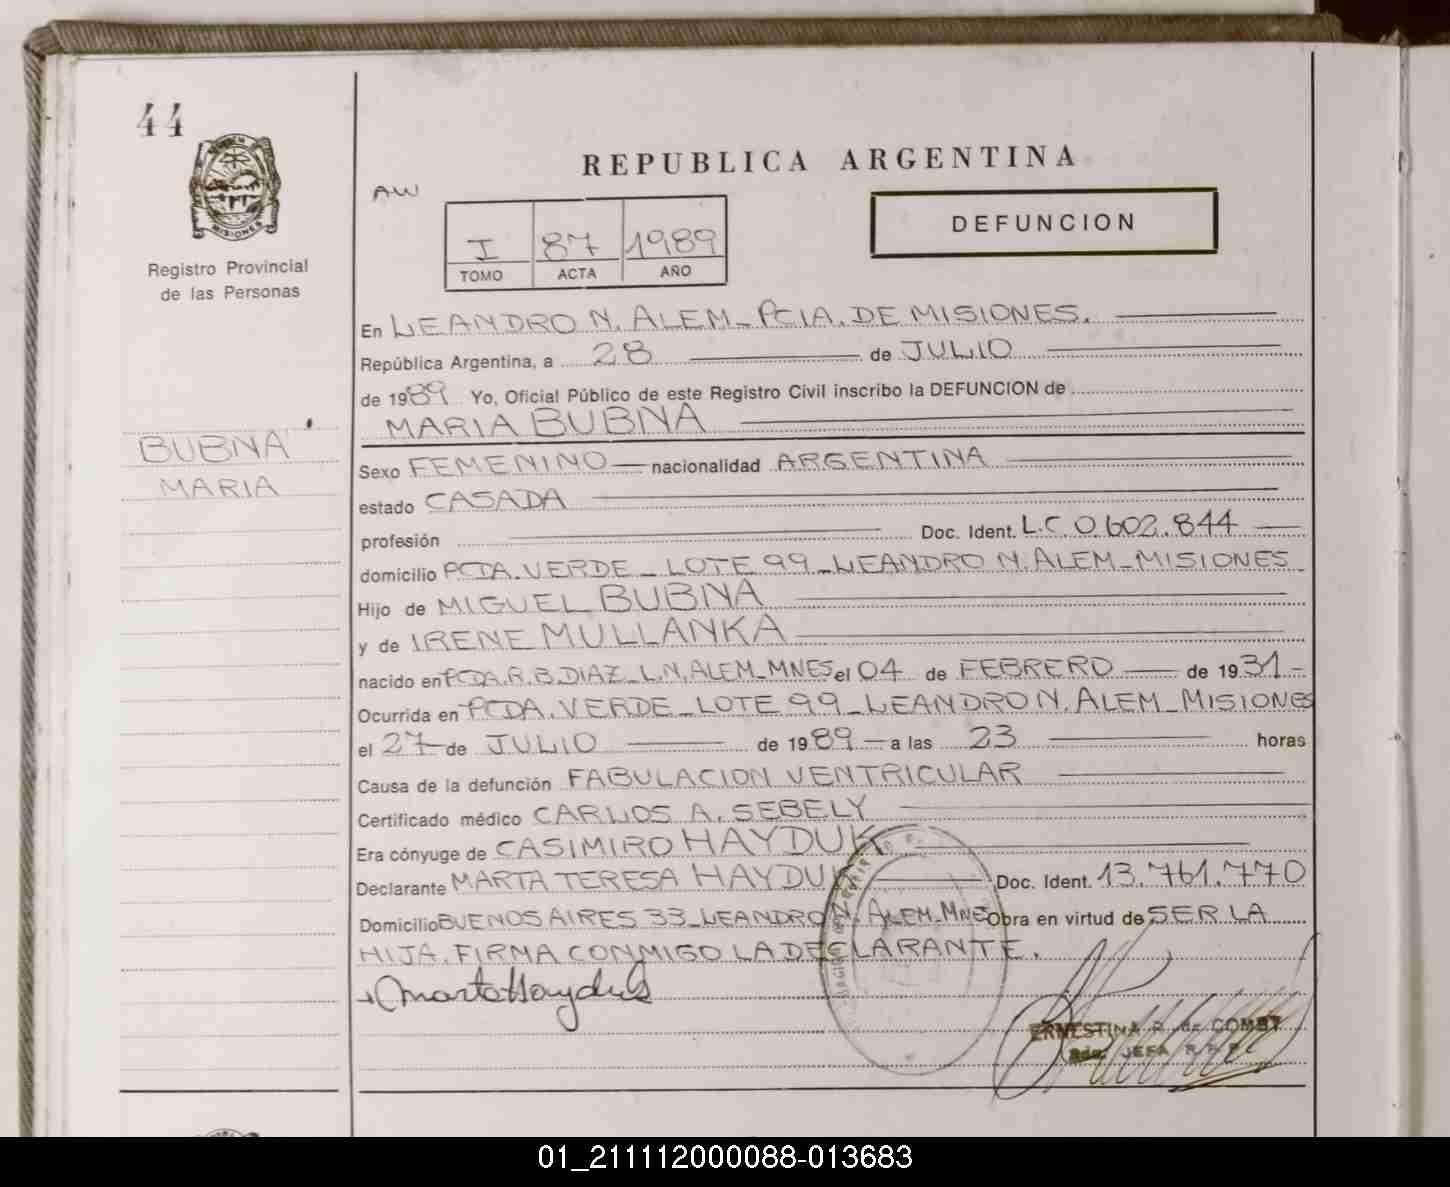 44
MISIONES
Registro Provincial
de las Personas
BUBNA
MARIA
REPUBLICA ARGENTINA
AW
I 87 1989
TOMO ACTA AÑO
DEFUNCION
En LEANDRO N. ALEM_PCIA. DE MISIONES.
República Argentina, a 28 de JULIO
de 1989 Yo, Oficial Público de este Registro Civil inscribo la DEFUNCION de
MARIA BUBNA
Sexo FEMENINO nacionalidad ARGENTINA
estado CASADA
profesión Doc. Ident. L.C 0.602.844
domicilio PCDA. VERDE _ LOTE 99_LEANDRO N. ALEM_MISIONES
Hijo de MIGUEL BUBNA
y de IRENE MULLANKA
nacido en PCDA. R. B. DIAZ_L.N. ALEM_MNES el 04 de FEBRERO de 1931
Ocurrida en PCDA. VERDE_LOTE 99_LEANDRO N. ALEM_MISIONES
el 27 de JULIO de 1989 a las 23 horas
Causa de la defunción FABULACION VENTRICULAR
Certificado médico CARLOS A. SEBELY
Era cónyuge de CASIMIRO HAYDUK
Declarante MARTA TERESA HAYDUK Doc. Ident. 13.761.770
Domicilio BUENOS AIRES 33_LEANDRO N. ALEM_MNES Obra en virtud de SER LA
HIJA. FIRMA CONMIGO LA DECLARANTE.
Marta Hayduk
ERNESTINA R. de COMBY
JEFA R.P.P.
01_211112000088-013683